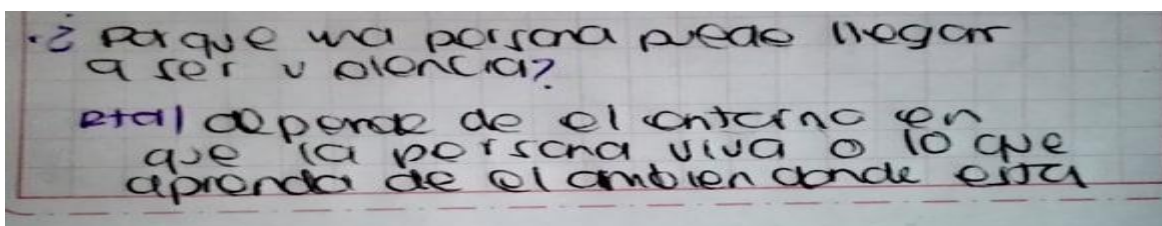 ·¿ Porque una persona puede llegar
a ser violencia?
etal depende de el entorno en
que la persona viva o lo que
aprenda de el ambien donde esta